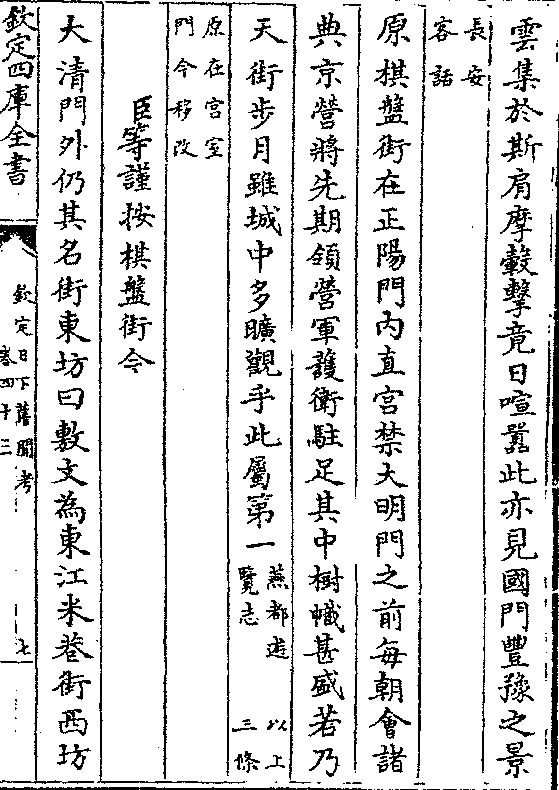 雲集於斯肩摩轂擊竟日喧囂此亦見國門豐豫之景
長安
客話
原棋盤街在正陽門内直宫禁大明門之前每朝會諸
典京營將先期領營軍護衛駐足其中樹幟甚盛若乃
天街步月雖城中多曠觀乎此屬第一燕都遊
覽志
以上
三條
原在宫室
門今移改
臣等謹按棋盤街今
大清門外仍其名街東坊曰敷文為東江米巷街西坊
欽定四庫全書
欽定日下舊聞考
卷四十三
七